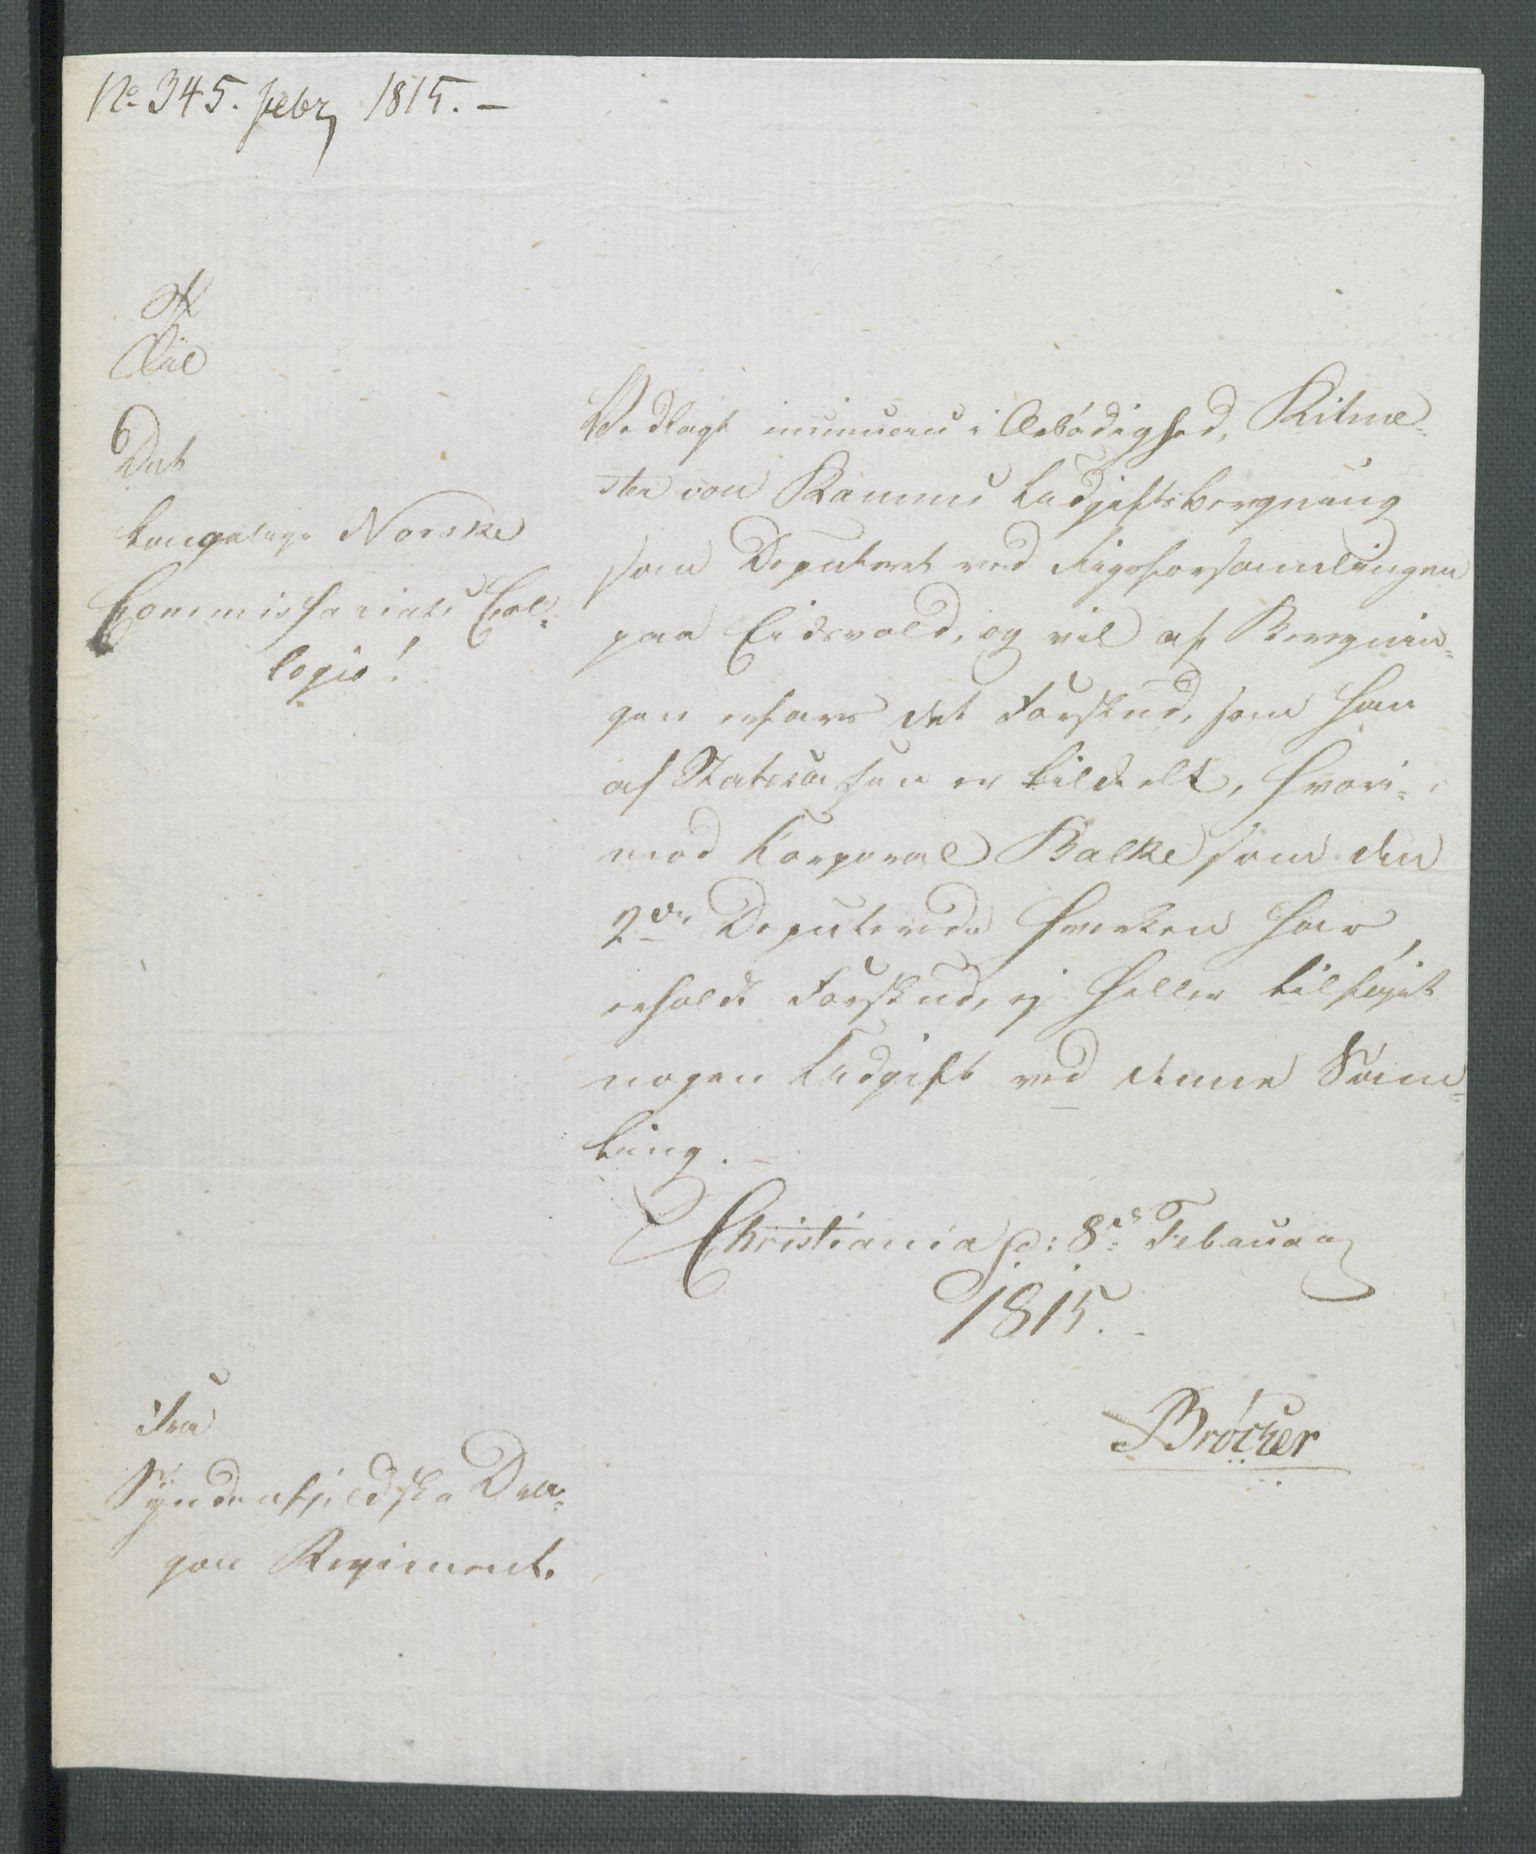 No 345. febr 1815. –
Til
Det
kongelige Norske
Commissariats Col-
legio!
Vedlagt i Ærbödighed, Ritme-
ster von Ramms Udgiftsberegning
som Deputeret ved Rigsforsamlingen
paa Eidsvold, og vil af Beregnin-
gen erfares det Forskud, som han
af Statscassen er tildelt, hvori-
mod Korporal Balke som den
2den Deputerede hverken har
erholdt Forskud, ej heller tilføjet
nogen Udgift ved denne Sam-
ling. –
Christiania d: 8de Februar
1815.
Bröcker
Fra
Syndenfjeldske Dra-
gon Regiment.